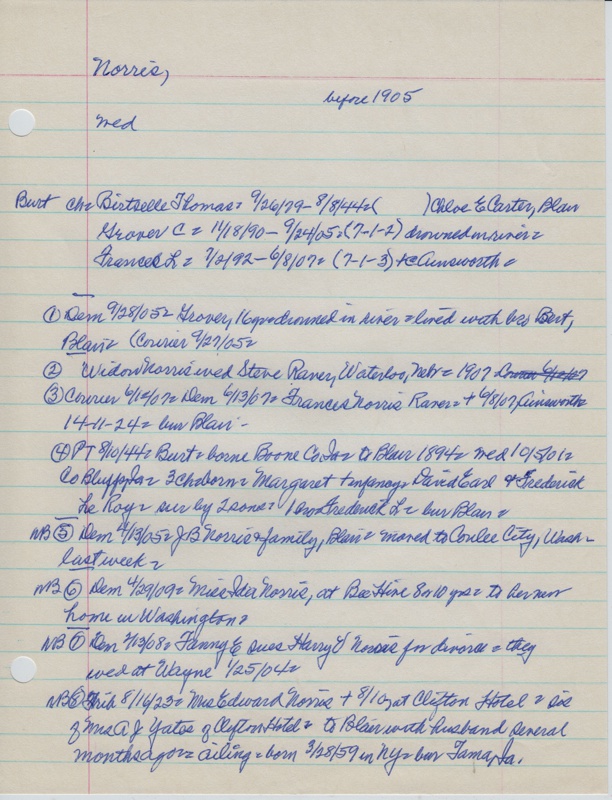 Norris,
before 1905
Wed
Burt ch= Birtselle Thomas= 9/26/79-8/8/44=( ) Chloe E Carter, Blair
Grover C = 11/18/90 - 9/24/05=(7-1-2) drowned in river=
Frances L = 7/2/92 - 6/8/07= (7-1-3) + c Ainsworth=
① Dem 9/28/05= Grover, 16 yo= drowned in river = lived with bro Bert,
Blair= (Courier 9/27/05=
② Widow Norris wed Steve Raver, Waterloo, Nebr= 1907
③ Courier 6/14/07= Dem 6/13/07= Frances Norris Raver= + 6/8/07, Ainsworth=
14-11-24= bur Blair-
④ PT 8/10/44= Burt= borne Boone Co. Ia= to Blair 1894= wed 10/5/01=
Co Bluffs, Ia= 3 ch born= Margaret + infancy= David Earl & Frederick
Le Roy= sur by 2 sons= 1 bro Frederick L= bur Blair=
NB ⑤ Dem 4/13/05= J B Norris & family, Blair= moved to Coulee City, Wash-
last week=
NB ⑥ Dem 4/29/09= Miss Ida Norris, at Bee Hive 8 or 10 yrs= to her new
home in Washington=
NB ⑦ Dem 2/13/08= Fanny E sues Harry V Norris for divorce= they
wed at Wayne 1/25/04=
NB ⑧ Trib 8/16/23= Mrs Edward Norris + 8/10 at Clifton Hotel = sis
of Mrs A J Yates of Clifton Hotel= to Blair with husband several
months ago= ailing= born 3/28/59 in NY= bur Tama, Ia.